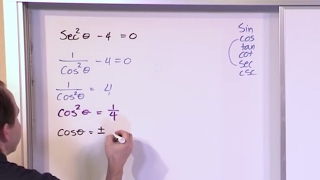 Sec²θ - 4 = 0
1/Cos²θ - 4 = 0
1/Cos²θ = 4
Cos²θ = 1/4
Cosθ = ±
Sin
cos
tan
cot
sec
csc